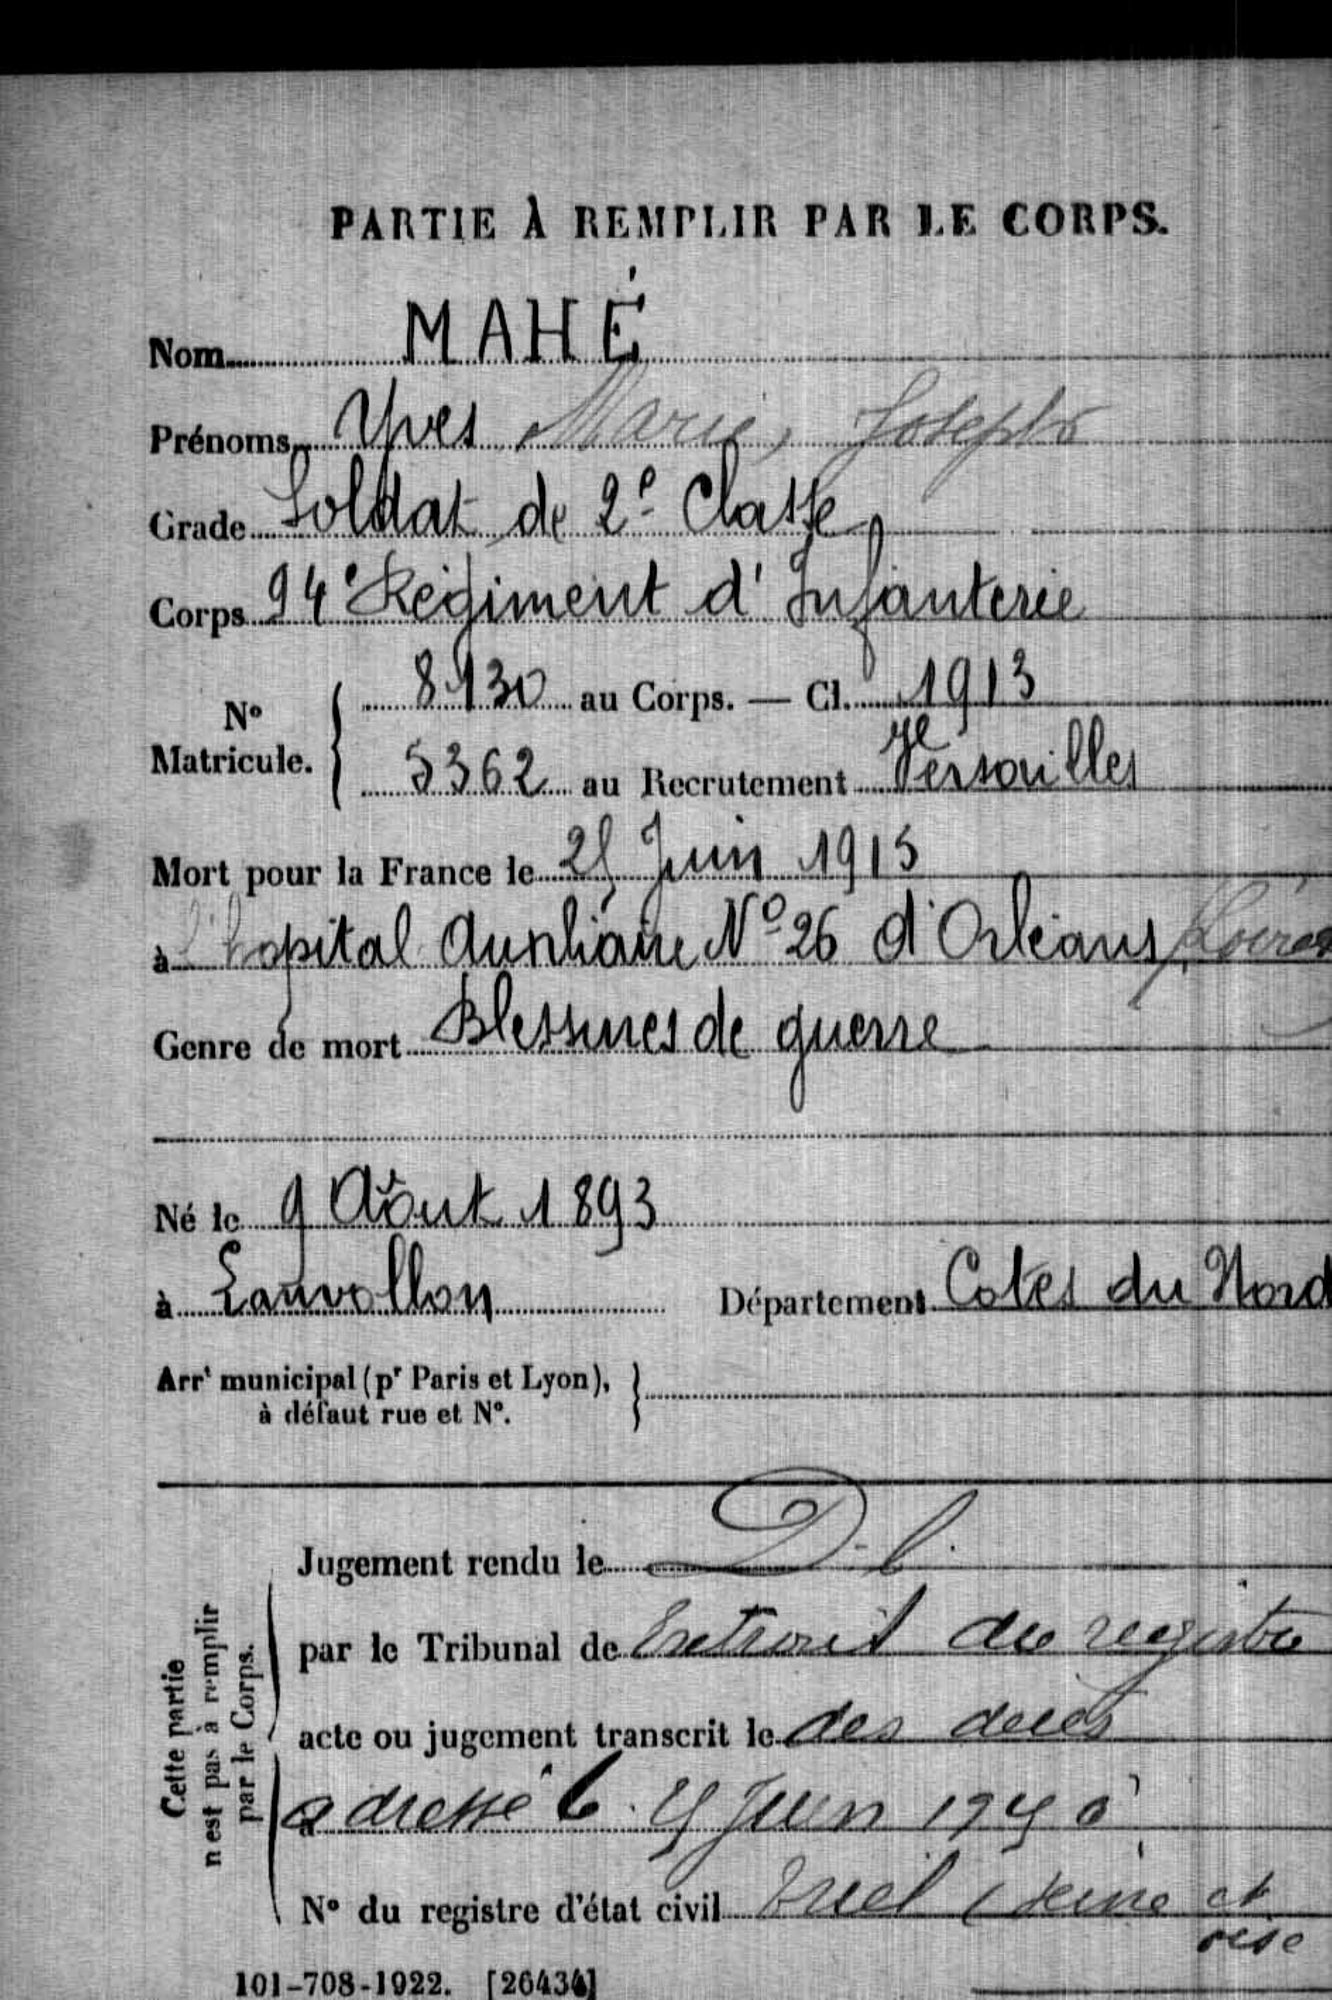 PARTIE À REMPLIR PAR LE CORPS.
Nom MAHÉ
Prénoms Yves Marie, Joseph
Grade Soldat de 2e Classe
Corps 94e Régiment d'Infanterie
8130 au Corps. — Cl. 1913
N° Matricule.
5362 au Recrutement Versailles
Mort pour la France le 25 Juin 1915
à l'hopital Auxiliaire N° 26 d'Orléans Loiret
Genre de mort Blessures de guerre
Né le 9 Août 1893
à Lanvollon Département Cotes du Nord
Arrt municipal (pr Paris et Lyon),
à défaut rue et N°.
Cette partie
n'est pas à remplir
par le Corps.
Jugement rendu le
par le Tribunal de Extrait du registre
acte ou jugement transcrit le des décès
adressé le Juin à
N° du registre d'état civil Triel (Seine et
oise
101-708-1922. [26434]